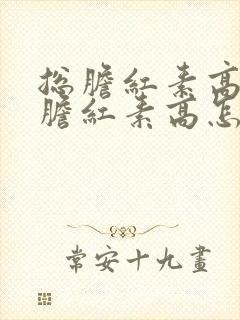 总胆红素高
胆红素高怎
常安十九画